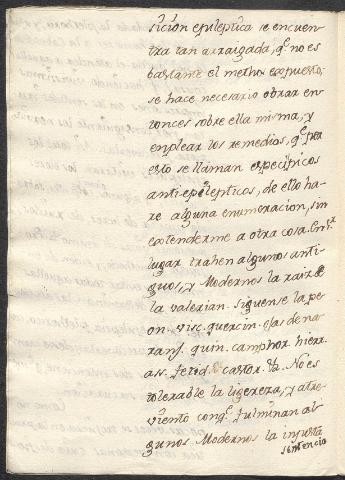 sicion epileptica se encuen-
tra tan arraigada, q.e no es
bastante el methodo expuesto,
se hace necesario obrar en-
tonces sobre ella misma, y
emplear los remedios, q.e por
esto se llaman especificos
anti-epilepticos, de ello ha-
re alguna enumeracion, sin
extenderme a otra cosa. En 1.r
lugar trahen algunos anti-
guos, y Modernos la raiz de
la valerian. siguense la pe-
on. visc. quercin. ojas de na-
ranj. quin. camphor. hierr.
ass. fetid. castor. &a. No es
tolerable la ligereza, y atre-
vimento con q.e fulminan al-
gunos Modernos la injusta
sentencia